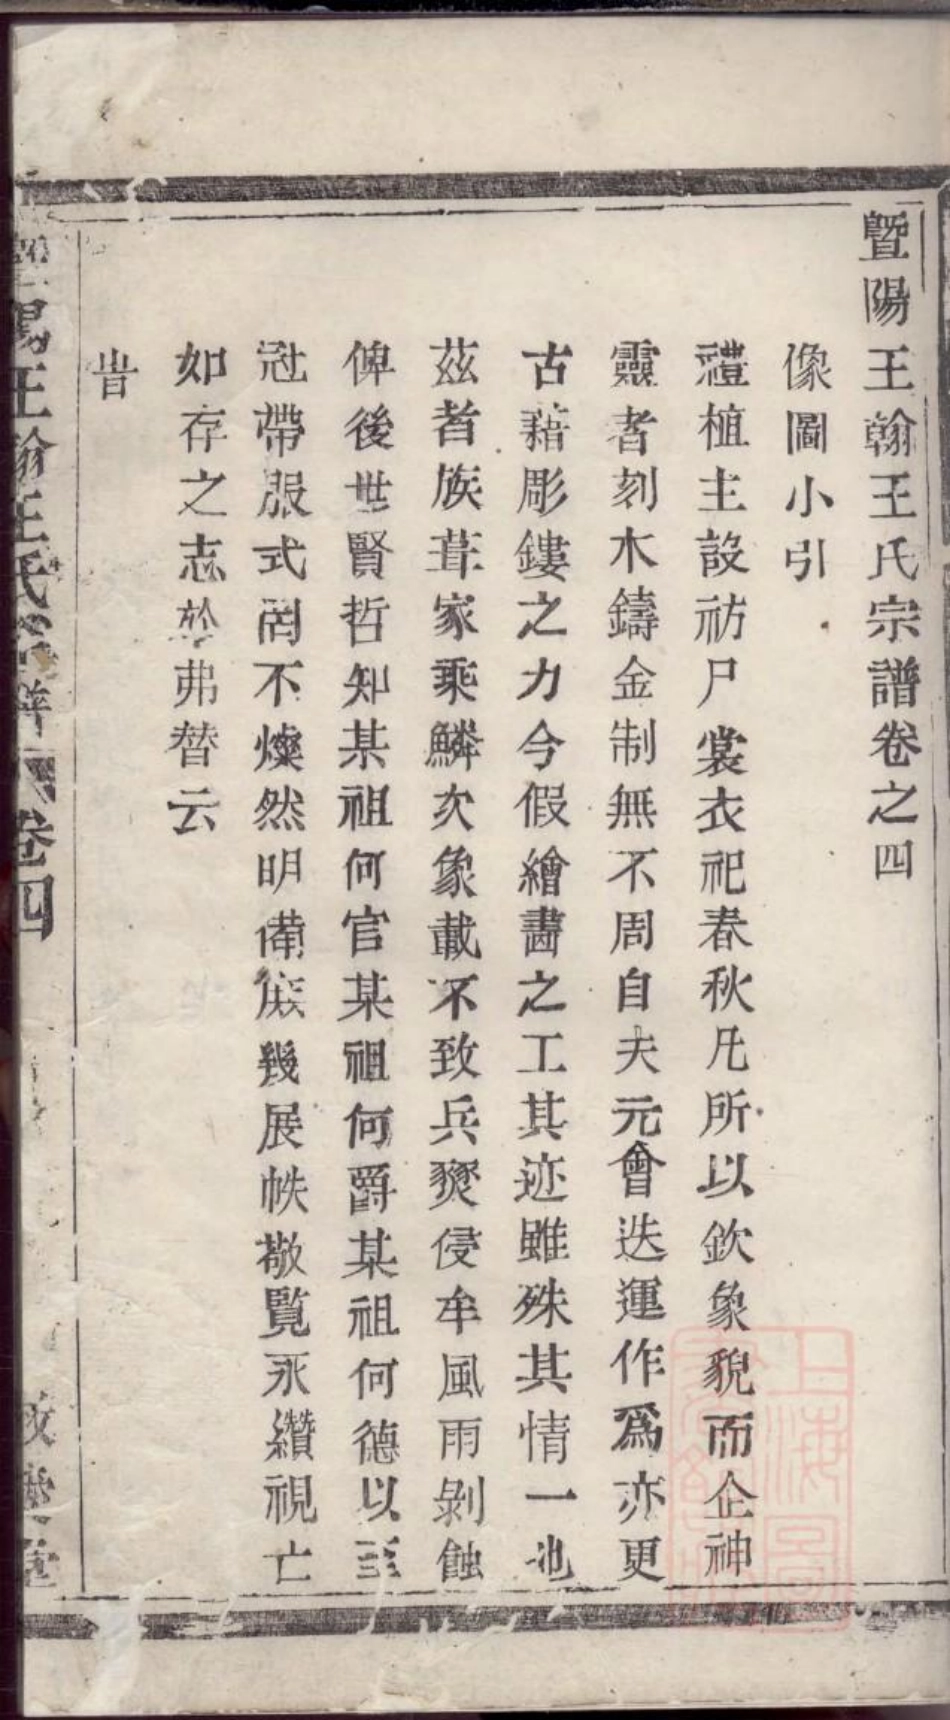 暨陽王翰王氏宗譜卷之四
像圖小引
禮植主設祊尸裳衣祀春秋凡所以欽象貌而企神
靈者刻木鑄金制無不周自夫元會迭運作爲亦更
古藉彫鏤之力今假繪畵之工其迹雖殊其情一也
茲者族葺家乘鱗次象載不致兵燹侵牟風雨剝蝕
俾後世賢哲知某祖何官某祖何爵某祖何德以至
冠帶服式罔不燦然明備庶幾展帙敬覽永纘視亡
如存之志於弗替云
旹
暨陽王翰王氏宗譜 卷四
堂
上海圖